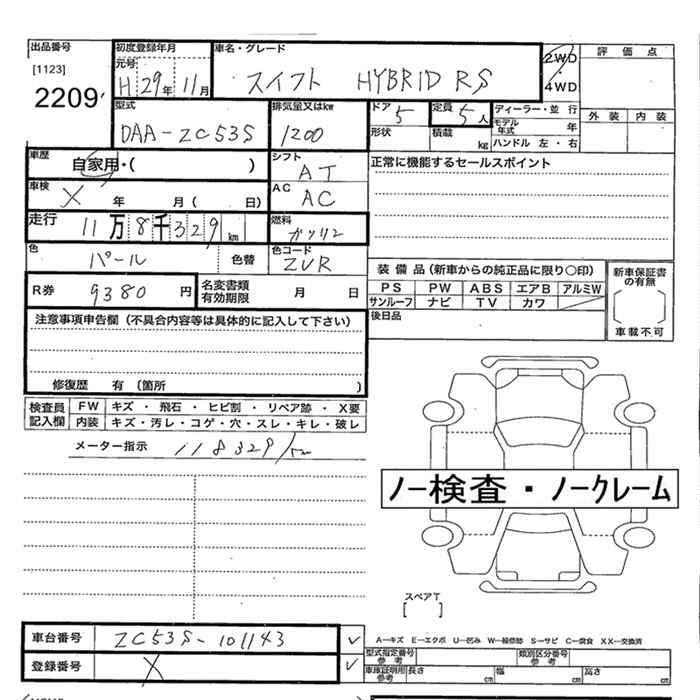 出品番号
[1123]
2209
初度登録年月
元号
H 29年 11月
車名・グレード
スイフト HYBRID RS
2WD
4WD
評価点
外装 内装
型式
DAA-ZC53S
排気量又はkw
1200
ドア
5
形状
定員
5人
積載
kg
ディーラー・並行
モデル年式 年
ハンドル 左・右
車歴
自家用・( )
シフト
AT
正常に機能するセールスポイント
車検
X 年 月( 日)
AC
AC
走行
11万8千329km
燃料
ガソリン
色
パール
色替
色コード
ZVR
装備品(新車からの純正品に限り○印)
PS PW ABS エアB アルミW
サンルーフ ナビ TV カワ
新車保証書の有無
車載不可
R券 9380円
名変書類有効期限 月 日
後日品
注意事項申告欄(不具合内容等は具体的に記入して下さい)
修復歴 有 〔箇所 )
検査員記入欄
FW キズ・飛石・ヒビ割・リペア跡・X要
内装 キズ・汚レ・コゲ・穴・スレ・キレ・破レ
メーター指示 118329km
ノー検査・ノークレーム
スペアT
[ ]
車台番号 ZC53S-101143
登録番号 X
A-キズ E-エクボ U-凹み W-補修跡 S-サビ C-腐食 XX-交換済
型式指定番号 参考
類別区分番号 参考
車庫証明用 参考
長さ cm 幅 cm 高さ cm